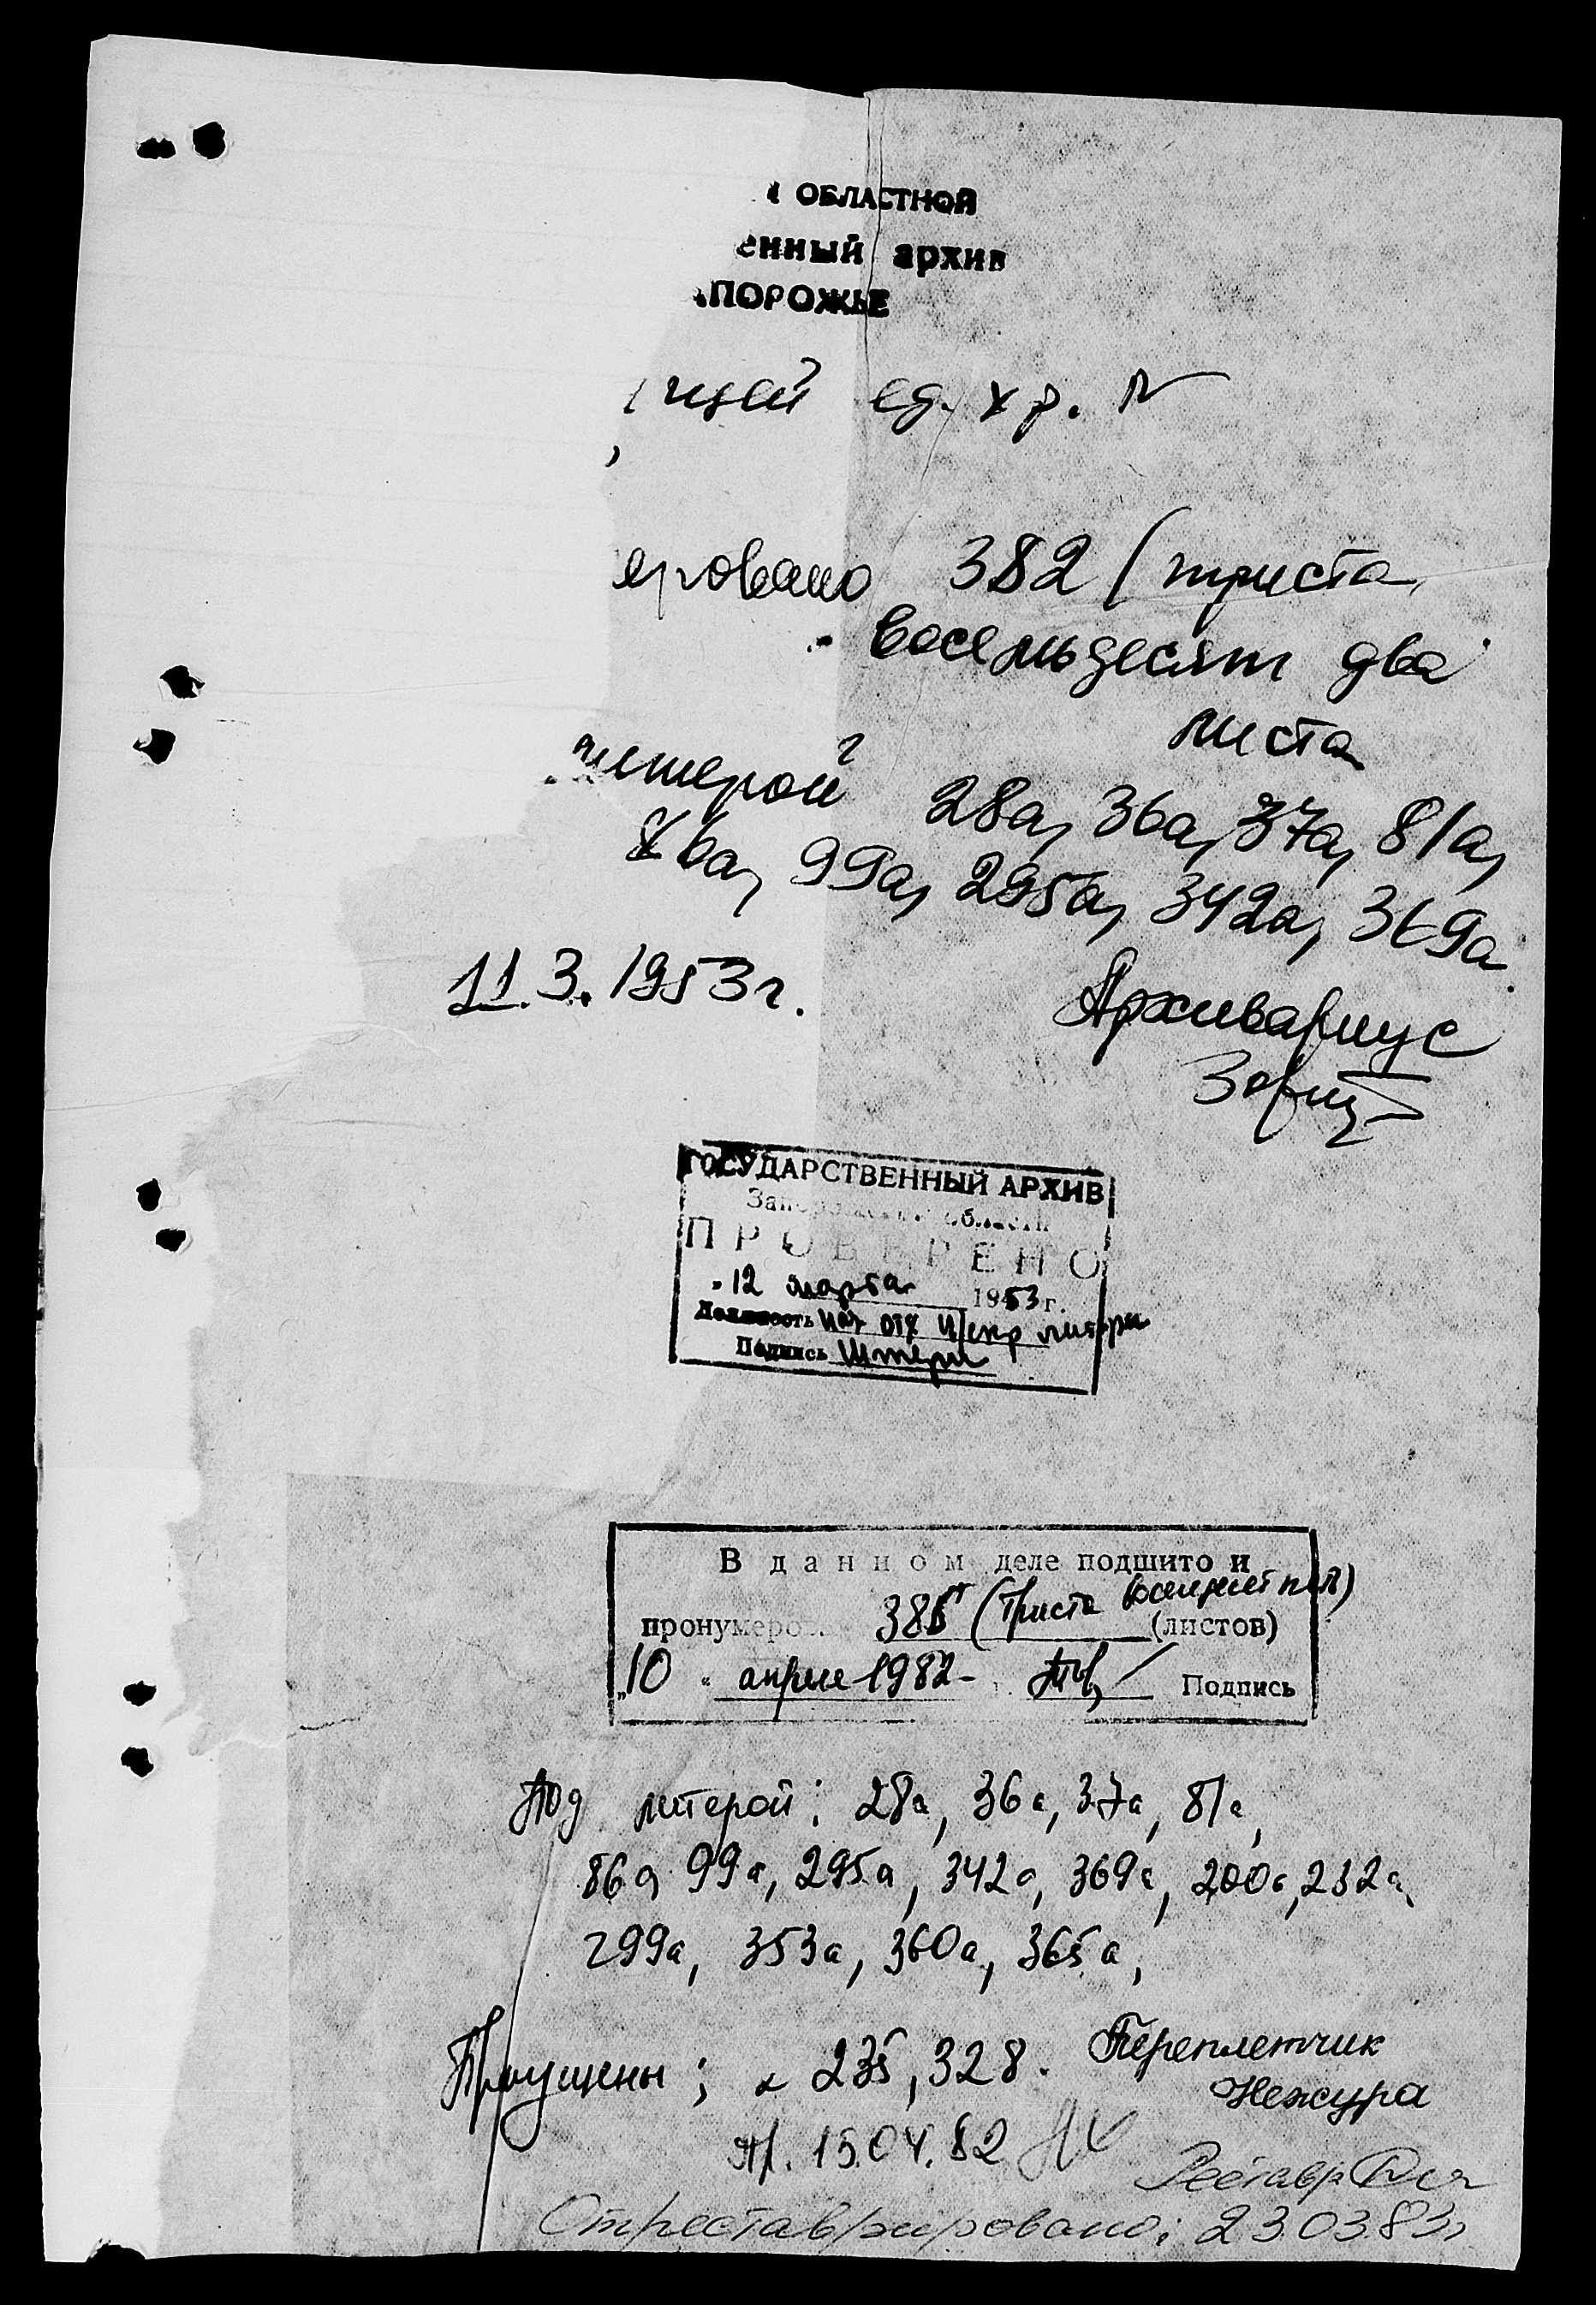 ОБЛАСТНОЙ
енный архив
ПОРОЖЬЕ
щей ед. хр. №
еровано 382 (триста
восемьдесят два
листа
литерой 28а, 36а, 37а, 81а,
86а, 99а, 295а, 342а, 369а
11.3.1953г.
Архивариус
ГОСУДАРСТВЕННЫЙ АРХИВ
Запорожской области
ПРОВЕРЕНО
"12 марта 1953г.
Должность нач отд
Подпись
В данном деле подшито и
пронумеров. 385 (триста восемдесят пять)
(листов)
"10" апреля 1982 Подпись
Под литерой: 28а, 36а, 37а, 81а,
86а, 99а, 295а, 342а, 369а, 200а, 232а,
299а, 353а, 360а, 365а,
Пропущены; 235, 328. Переплетчик
Нежура
15.04.82
Реставр
Отреставрировано: 23.03.83